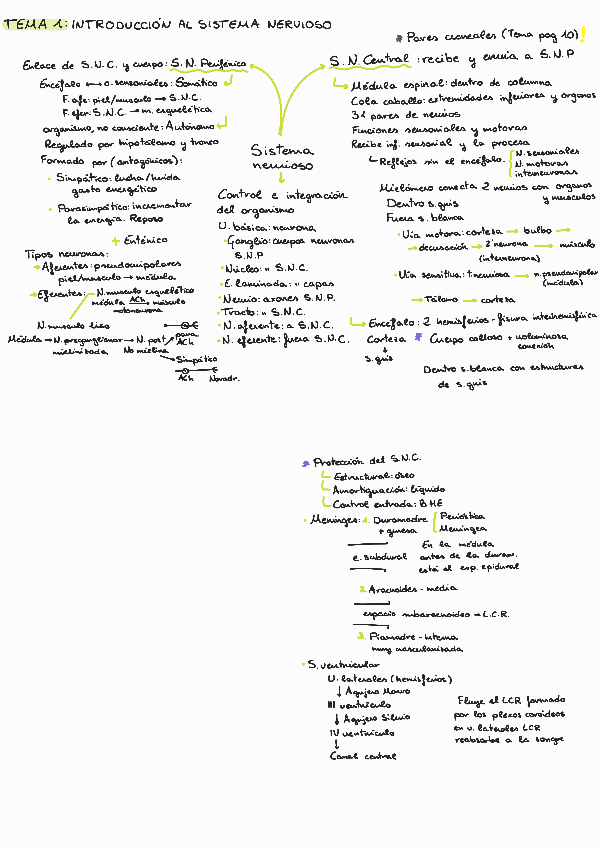 TEMA 1: INTRODUCCIÓN AL SISTEMA NERVIOSO
* Pares craneales (Tema pag 10)!
Enlace de S.N.C. y cuerpo: S.N. Periférico
Encéfalo → o. sensoriales: Somático
F. afe: piel/musculo → S.N.C.
F. efer: S.N.C. → m. esquelética
organismo, no consciente: Autónomo
Regulado por hipotálamo y tronco
Formado por (antagónicos):
• Simpático: lucha/huida
gasto energético
• Parasimpático: incrementar
la energía. Reposo
+ Entérico
Tipos neuronas:
Aferentes: pseudounipolares
piel/musculo → médula
Eferentes: N. musculo esquelético
médula ACh → músculo
motoneurona
N. musculo liso
Médula → N. preganglionar → N. post
mielinizada No mielina
para
ACh
Simpático
ACh Noradr.
Sistema
nervioso
Control e integración
del organismo
U. básica: neurona
• Ganglio: cuerpos neuronas
S.N.P
• Núcleo: " S.N.C.
• E. laminada: " capas
• Nervio: axones S.N.P.
• Tracto: " S.N.C.
• N. aferente: a S.N.C.
• N. eferente: fuera S.N.C.
S.N. Central: recibe y envia a S.N.P
Médula espinal: dentro de columna
Cola caballo: extremidades inferiores y organos
31 pares de nervios
Funciones sensoriales y motoras
Recibe inf. sensorial y la procesa
Reflejos sin el encéfalo.
N. sensoriales
N. motoras
interneuronas
Mielómero conecta 2 nervios con organos
y musculos
Dentro s. gris
Fuera s. blanca
• Vía motora: corteza → bulbo →
→ decusación → 2ª neurona → músculo
(interneurona)
• Vía sensitiva: 1ª neurona → n. pseudounipolar
(médula)
→ Tálamo → corteza
Encéfalo: 2 hemisferios - fisura interhemisférica
Corteza * Cuerpo calloso + voluminosa
↓ conexión
S. gris
Dentro s. blanca con estructuras
de s. gris
* Protección del S.N.C.
Estructural: óseo
Amortiguación: líquido
Control entrada: BHE
• Meninges: 1. Duramadre
+ gruesa
Perióstica
Meníngea
e. subdural
En la médula
antes de la duram.
está el esp. epidural
2. Aracnoides - media
espacio subaracnoideo → L.C.R.
3. Piamadre - interna
muy vascularizada
• S. ventricular
V. laterales (hemisferios)
↓ Agujero Monro
III ventrículo
↓ Agujero Silvio
IV ventrículo
↓
Canal central
Fluye el LCR formado
por los plexos coroideos
en v. laterales LCR
reabsorbe a la sangre